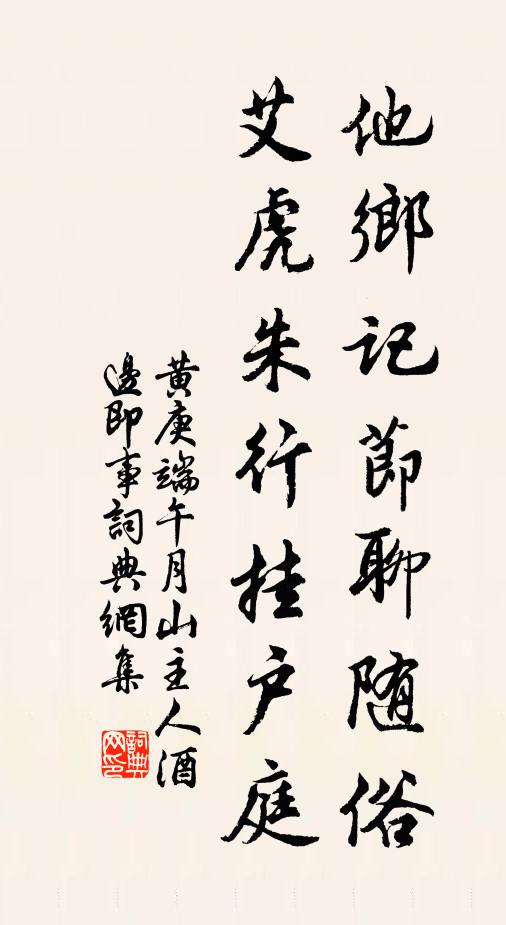 他鄉記節聊随俗
艾虎朱行挂户庭
黄庚端午月山主人酒
邊即事詞典網集
詞典网印